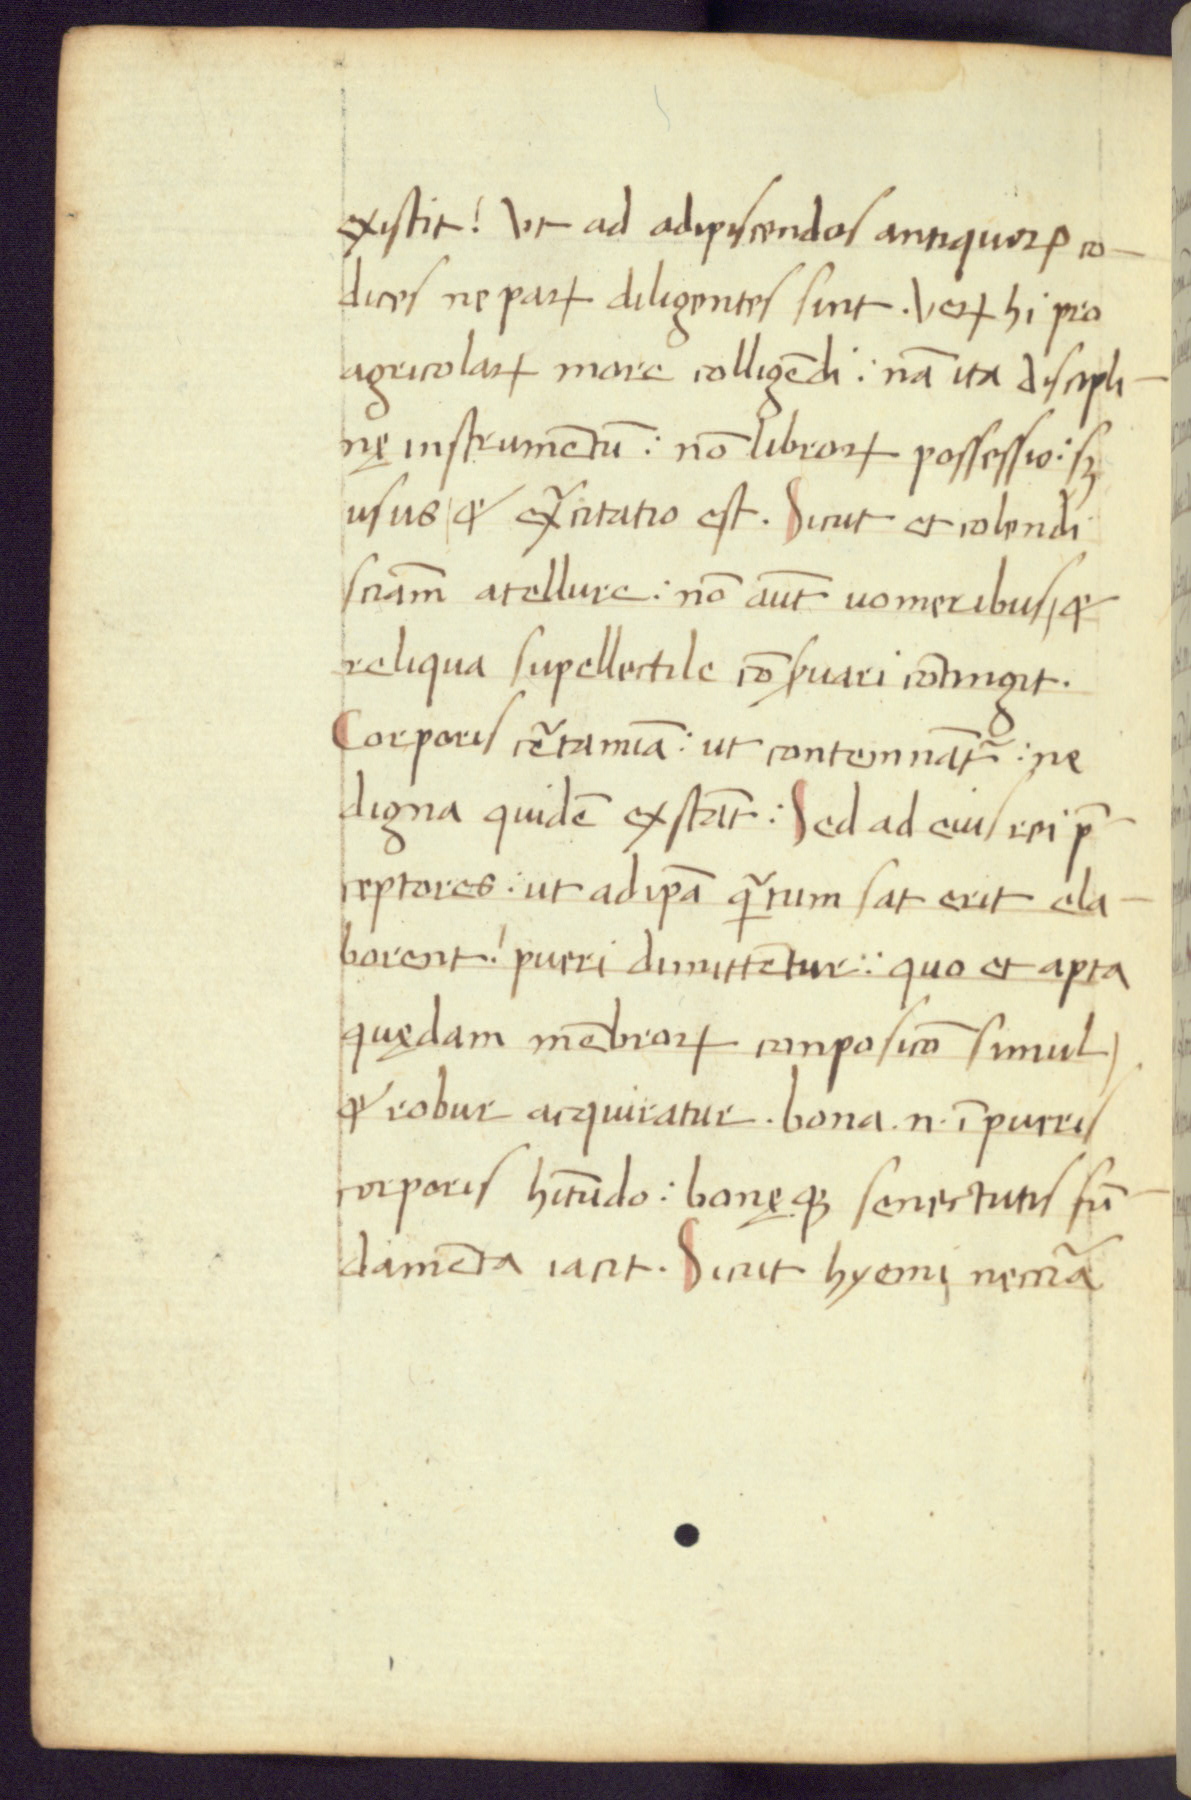 existit! Vt ad adipiscendos antiquorꝝ co-
dices ne parꝝ diligentes sint. Verꝝ hi pro
agricolarꝝ more colligēdi: nā ita discipli-
nę instrumētū: nō librorꝝ possessio: sꝫ
usus / & ex̃citatio est. Sicut et colendi
sciam̄ a tellure: nō aut̄ uomeribus / &
reliqua supellectile cōs̃uari cōtingit.
Corporis cẽtamīa: ut contemnāt̃: ne
digna quidē extāt: Sed ad eius rei p̄-
ceptores: ut ad ip̄a q̃tum sat erit ela-
borent! pueri dimittētur: quo et apta
quędam mēbrorꝝ conposicō simul /
& robur acquiratur. bona .n. ī pueris
corporis hītudo: bonęqꝫ senectutis fū-
damēta iacit. Sicut hyemi neccīa